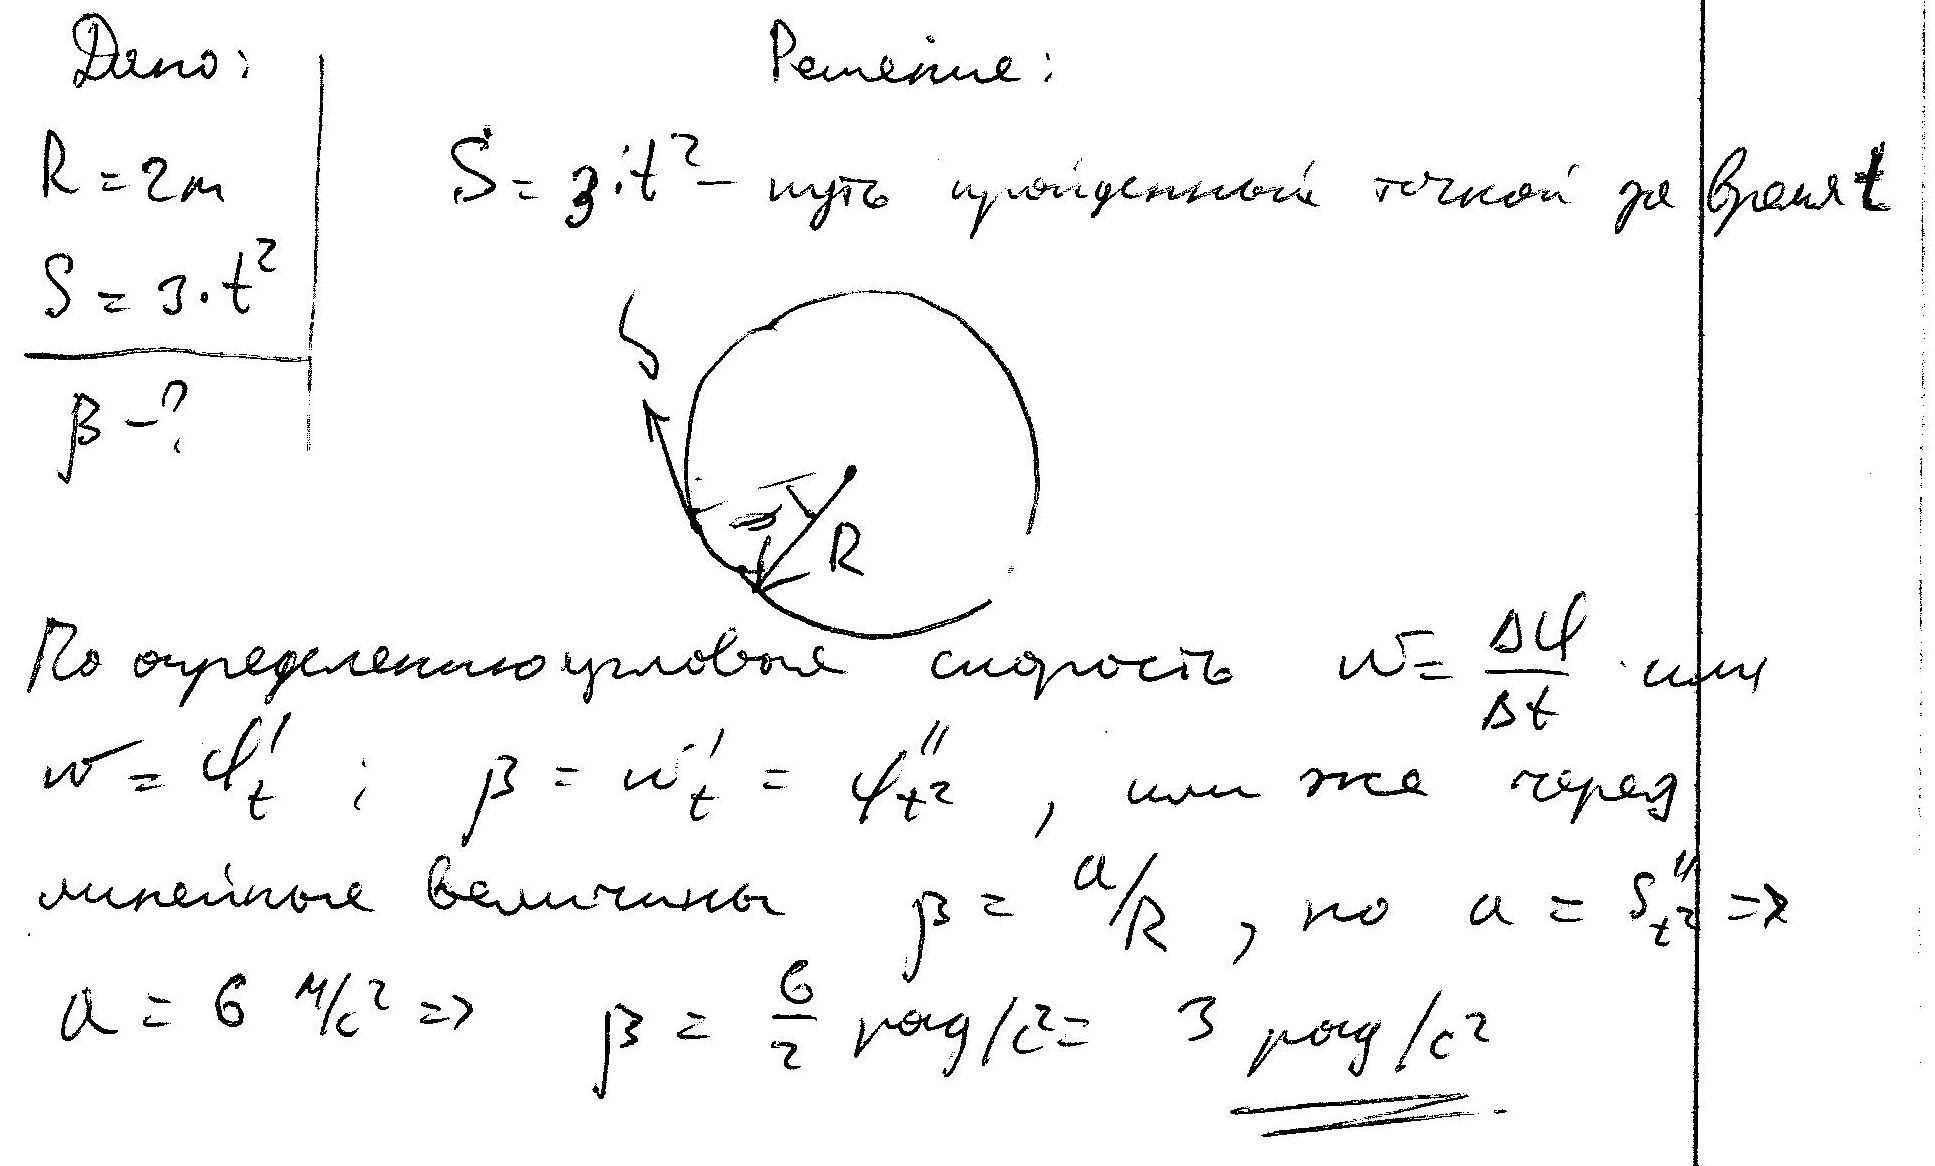 Дано:
R = 2м
S = 3·t²
β - ?
Решение:
S = 3·t² – путь пройденный точкой за время t
S
R
По определению угловая скорость w = Δφ/Δt или
w = φ'ₜ ; β = w'ₜ = φ''ₜ² , или же через
линейные величины β = a/R , но a = S''ₜ² =>
a = 6 м/с² => β = 6/2 рад/с² = 3 рад/с²